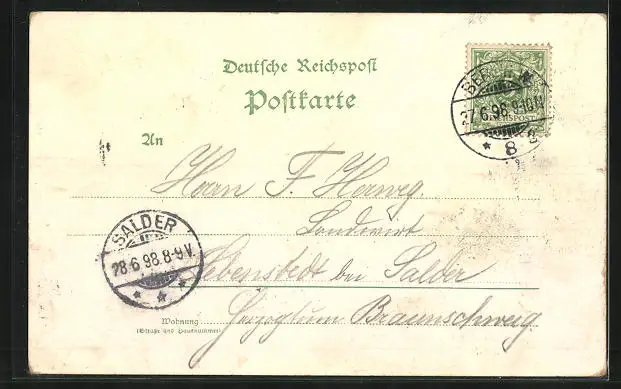 Deutsche Reichspost
Postkarte
REICHSPOST
27.6.98.9-10N
8
An
Herrn F. Herweg.
Landwirt
Lebenstedt bei Salder
Herzogtum Braunschweig
SALDER
28.6.98.8-9V.
Wohnung
(Straße und Hausnummer)